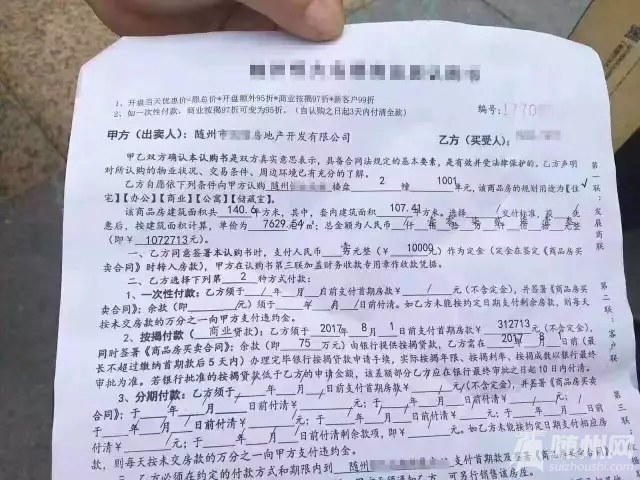 1、开盘当天优惠价=原总价*开盘额外95折*商业按揭97折*新客户99折
2、如一次性付款,商业按揭97折可变为95折。(自认购之日起3天内付清全款)
编号:
甲方(出卖人):随州市 房地产开发有限公司
乙方(买受人):
甲乙双方确认本认购书是双方真实意思表示,具备合同法规定的基本要素,是有效并受法律保护的。乙方声明
对所认购的物业状况、交易条件、周边环境已有充分的了解。
乙方自愿依下列条件向甲方认购 随州 楼盘 2 幢 1001 单元,该商品房的规划用途为【住
宅】【办公】【商业】【公寓】【储藏室】。
该商品房建筑面积共 平方米,其中,套内建筑面积 107.41 平方米。选择 / 支付标准,
惠后,按建筑面积计算,单价为 7629.54 元/㎡;总金额为人民币
(即¥ 1072713 元)。
一、乙方同意签署本认购书时,支付人民币 壹万元整(¥ 10000 )作为定金(定金在签定《商品房买
卖合同》时转入房款),甲方在认购书第三联加盖财务收款专用章作收款凭据。
二、乙方选择下列第 2 种方式付款:
1、一次性付款:乙方须于 / 年 / 月 / 日前支付首期房款¥ / 元(不含定金),并签署《商品房买
卖合同》;余款(即 / 元)须于 / 年 / 月 / 日前付清。如乙方未能按约定日期支付剩余房款,则每天
按未交房款的万分之一向甲方支付违约金。
2、按揭付款(商业贷款):乙方须于 2017 年 8 月 1 日前支付首期房款¥ 312713 元(不含定金),
同时签署《商品房买卖合同》;余款(即 75 万元)由银行提供按揭贷款,乙方需在 2017 / 8 / 日前(最
长不超过缴纳首期款后5天内)办理完毕银行按揭贷款申请手续,实际按揭年限、按揭利率、按揭成数以银行最终
审批为准。若银行批准的按揭贷款低于乙方的申请金额,该差额部分乙方应在银行最终审批之日起10日内付清。
3、分期付款:乙方须于 / 年 / 月 / 日前支付首期房款¥ / 元(不含定金),并签署《商品房买卖
合同》;于 / 年 / 月 / 日前付清¥ / 元;于 / 年 / 月 / 日前付清¥ / 元;
于 / 年 / 月 / 日前付清剩余房款,即¥ / 元。如乙方未能按约定日期支付剩余房
款,则每天按未交房款的万分之一向甲方支付违约金。
三、乙方必须在约定的付款方式和期限内到 随州 支付首期款及签署《商品房买
第一联:发展商联
第二联:客户联
第三联
随州网
suizhoushi.com